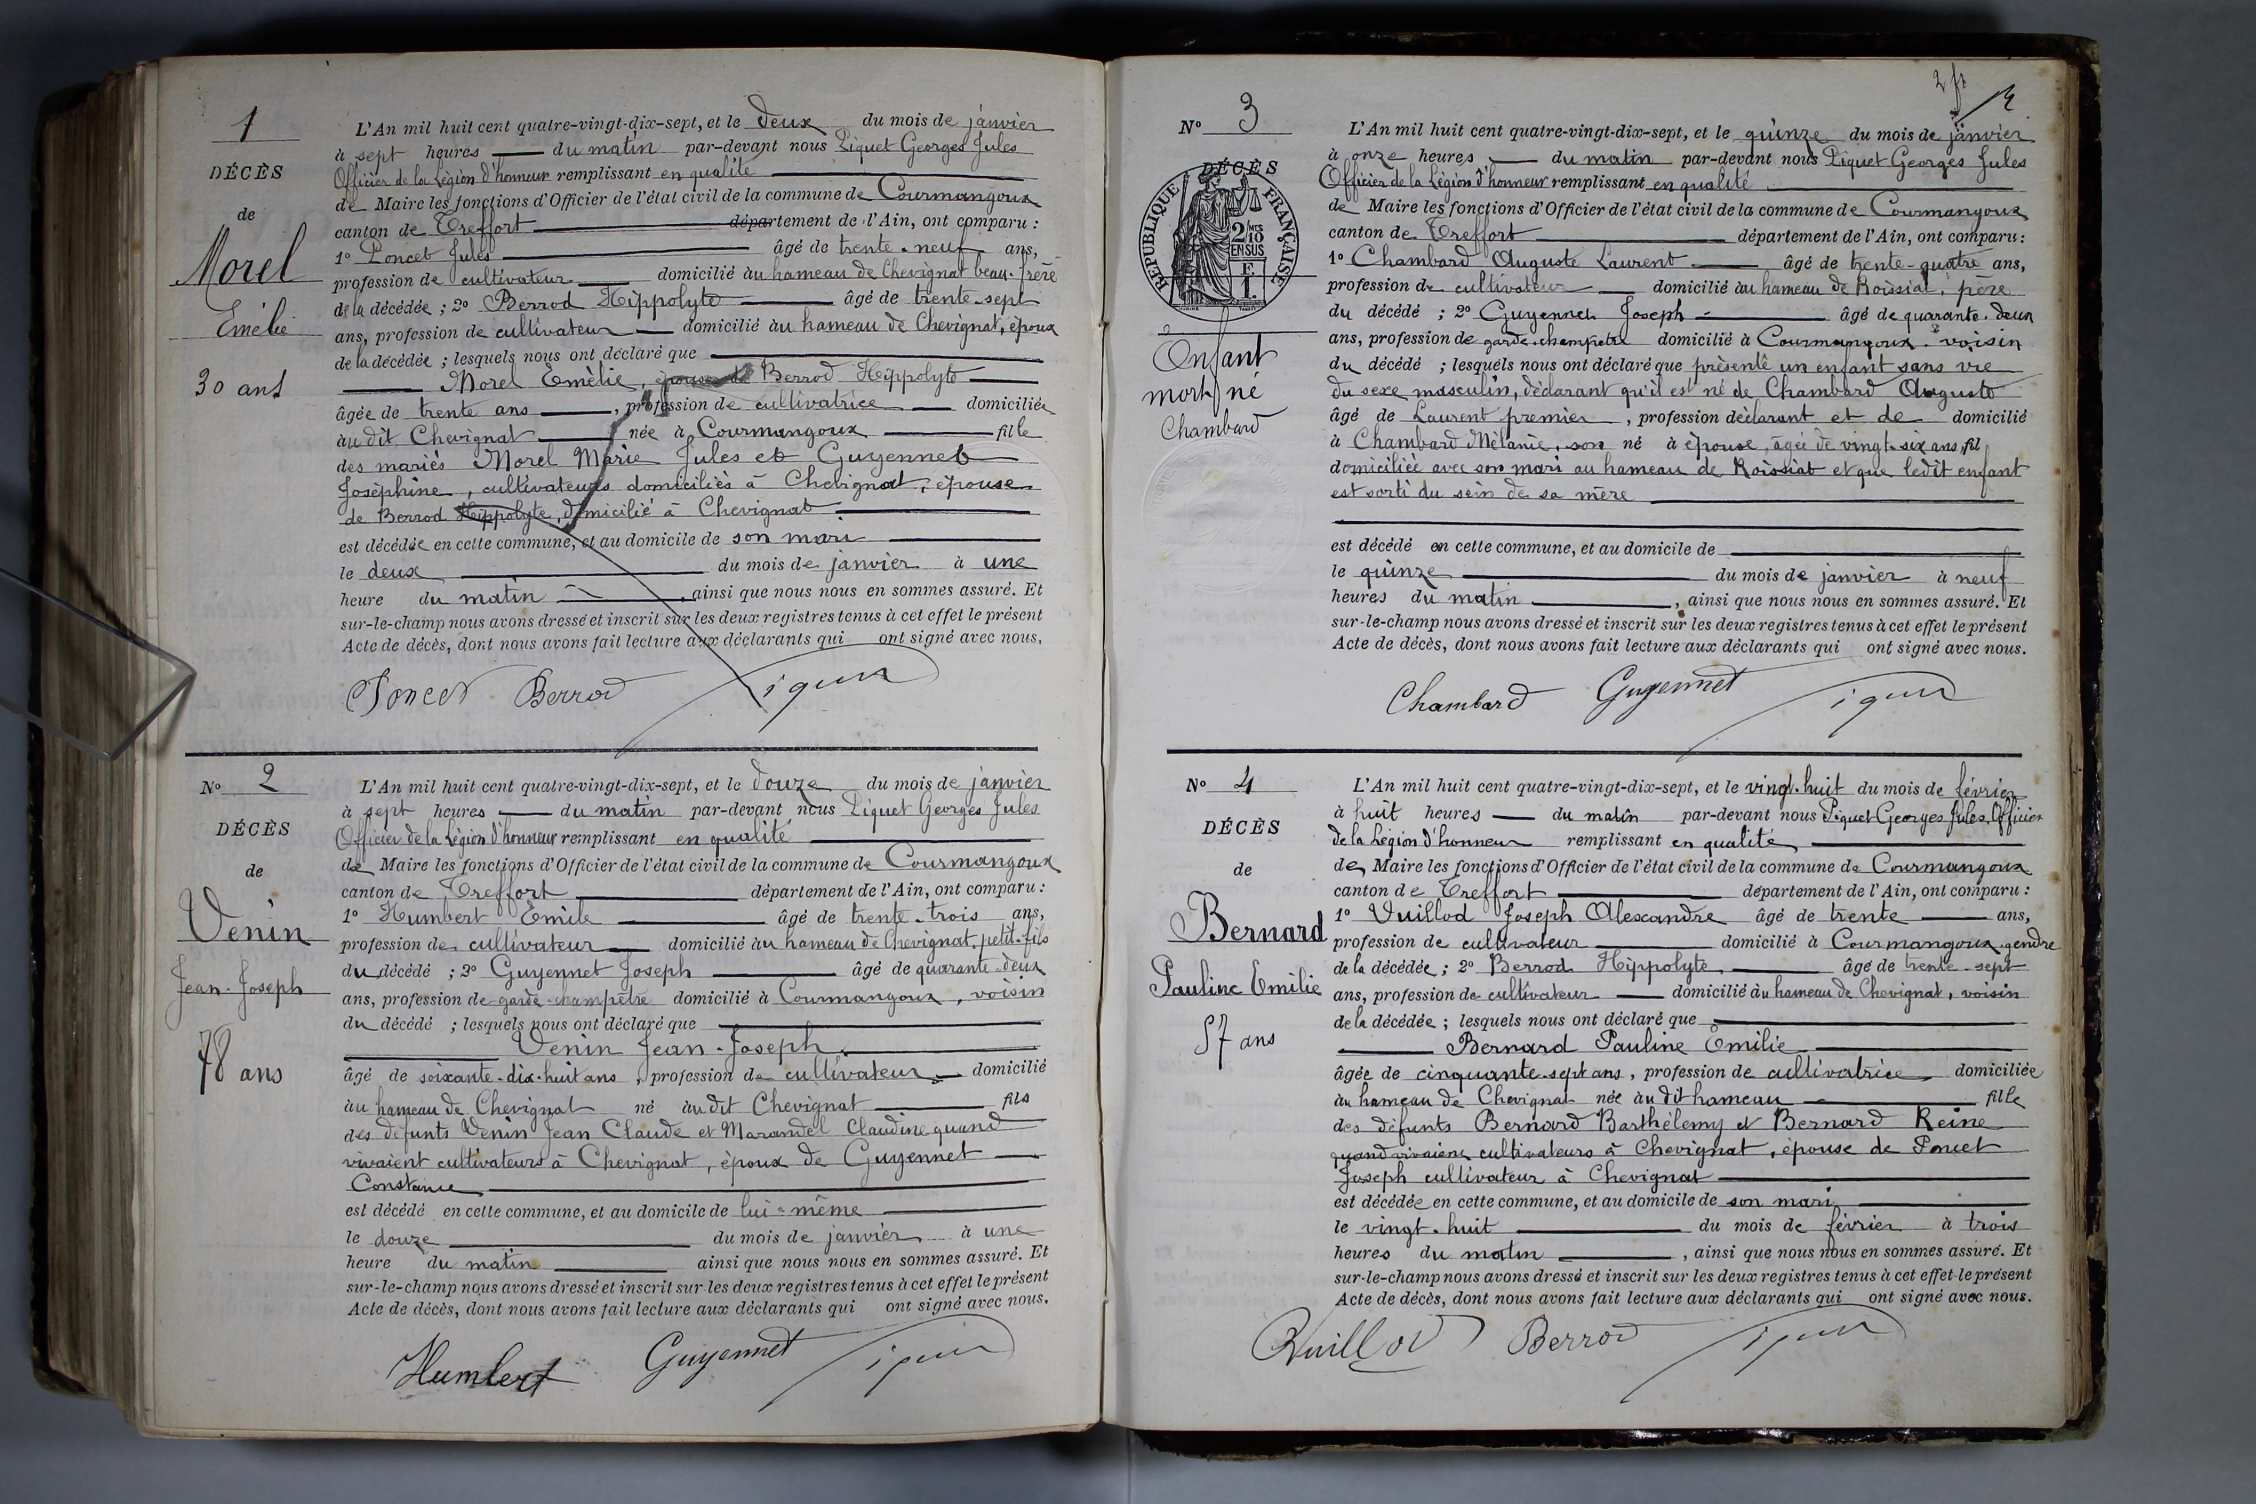 1
DÉCÈS
de
Morel
Emélie
30 ans
L'An mil huit cent quatre-vingt-dix-sept, et le deux du mois de janvier
à sept heures du matin par-devant nous Piquet Georges Jules
Officier de la Légion d'honneur remplissant en qualité
de Maire les fonctions d'Officier de l'état civil de la commune de Courmangoux
canton de Treffort département de l'Ain, ont comparu :
1º Poncet Jules âgé de trente-neuf ans,
profession de cultivateur domicilié au hameau de Chevignat beau-frère
de la décédée ; 2º Berrod Hippolyte âgé de trente-sept
ans, profession de cultivateur domicilié au hameau de Chevignat, époux
de la décédée ; lesquels nous ont déclaré que
Morel Emélie, épouse de Berrod Hippolyte
âgée de trente ans, profession de cultivatrice domiciliée
au dit Chevignat née à Courmangoux fille
des mariés Morel Marie Jules et Guyennet
Joséphine, cultivateurs domiciliés à Chevignat, épouse
de Berrod Hippolyte, domicilié à Chevignat
est décédée en cette commune, et au domicile de son mari
le deux du mois de janvier à une
heure du matin, ainsi que nous nous en sommes assuré. Et
sur-le-champ nous avons dressé et inscrit sur les deux registres tenus à cet effet le présent
Acte de décès, dont nous avons fait lecture aux déclarants qui ont signé avec nous.
Poncet Berrod Piquet
Nº 2
DÉCÈS
de
Venin
Jean-Joseph
78 ans
L'An mil huit cent quatre-vingt-dix-sept, et le douze du mois de janvier
à sept heures du matin par-devant nous Piquet Georges Jules
Officier de la Légion d'honneur remplissant en qualité
de Maire les fonctions d'Officier de l'état civil de la commune de Courmangoux
canton de Treffort département de l'Ain, ont comparu :
1º Humbert Emile âgé de trente-trois ans,
profession de cultivateur domicilié au hameau de Chevignat, petit-fils
du décédé ; 2º Guyennet Joseph âgé de quarante-deux
ans, profession de garde-champêtre domicilié à Courmangoux, voisin
du décédé ; lesquels nous ont déclaré que
Venin Jean-Joseph
âgé de soixante-dix-huit ans, profession de cultivateur domicilié
au hameau de Chevignat né audit Chevignat fils
des défunts Venin Jean Claude et Marandel Claudine quand
vivaient cultivateurs à Chevignat, époux de Guyennet
Constance
est décédé en cette commune, et au domicile de lui-même
le douze du mois de janvier à une
heure du matin ainsi que nous nous en sommes assuré. Et
sur-le-champ nous avons dressé et inscrit sur les deux registres tenus à cet effet le présent
Acte de décès, dont nous avons fait lecture aux déclarants qui ont signé avec nous.
Humbert Guyennet Piquet
2 ft
2
Nº 3
DÉCÈS
RÉPUBLIQUE FRANÇAISE
2 MES
10
EN SUS
F
1
Enfant
mort-né
Chambard
L'An mil huit cent quatre-vingt-dix-sept, et le quinze du mois de janvier
à onze heures du matin par-devant nous Piquet Georges Jules
Officier de la Légion d'honneur remplissant en qualité
de Maire les fonctions d'Officier de l'état civil de la commune de Courmangoux
canton de Treffort département de l'Ain, ont comparu :
1º Chambard Auguste Laurent âgé de trente-quatre ans,
profession de cultivateur domicilié au hameau de Roissiat, père
du décédé ; 2º Guyennet Joseph âgé de quarante-deux
ans, profession de garde-champêtre domicilié à Courmangoux, voisin
du décédé ; lesquels nous ont déclaré que présenté un enfant sans vie
du sexe masculin, déclarant qu'il est né de Chambard Auguste
âgé de Laurent premier, profession déclarant et de domicilié
à Chambard Mélanie, son né à épouse, âgée de vingt-six ans, fil
domiciliée avec son mari au hameau de Roissiat et que ledit enfant
est sorti du sein de sa mère
est décédé en cette commune, et au domicile de
le quinze du mois de janvier à neuf
heures du matin, ainsi que nous nous en sommes assuré. Et
sur-le-champ nous avons dressé et inscrit sur les deux registres tenus à cet effet le présent
Acte de décès, dont nous avons fait lecture aux déclarants qui ont signé avec nous.
Chambard Guyennet Piquet
Nº 4
DÉCÈS
de
Bernard
Pauline Emilie
57 ans
L'An mil huit cent quatre-vingt-dix-sept, et le vingt-huit du mois de février
à huit heures du matin par-devant nous Piquet Georges Jules, Officier
de la Légion d'honneur remplissant en qualité
de Maire les fonctions d'Officier de l'état civil de la commune de Courmangoux
canton de Treffort département de l'Ain, ont comparu :
1º Vuillod Joseph Alexandre âgé de trente ans,
profession de cultivateur domicilié à Courmangoux, gendre
de la décédée ; 2º Berrod Hippolyte âgé de trente-sept
ans, profession de cultivateur domicilié au hameau de Chevignat, voisin
de la décédée ; lesquels nous ont déclaré que
Bernard Pauline Emilie
âgée de cinquante-sept ans, profession de cultivatrice domiciliée
au hameau de Chevignat née au dit hameau fille
des défunts Bernard Barthélemy et Bernard Reine
quand vivaient cultivateurs à Chevignat, épouse de Poncet
Joseph cultivateur à Chevignat
est décédée en cette commune, et au domicile de son mari
le vingt-huit du mois de février à trois
heures du matin, ainsi que nous nous en sommes assuré. Et
sur-le-champ nous avons dressé et inscrit sur les deux registres tenus à cet effet le présent
Acte de décès, dont nous avons fait lecture aux déclarants qui ont signé avec nous.
Vuillod Berrod Piquet